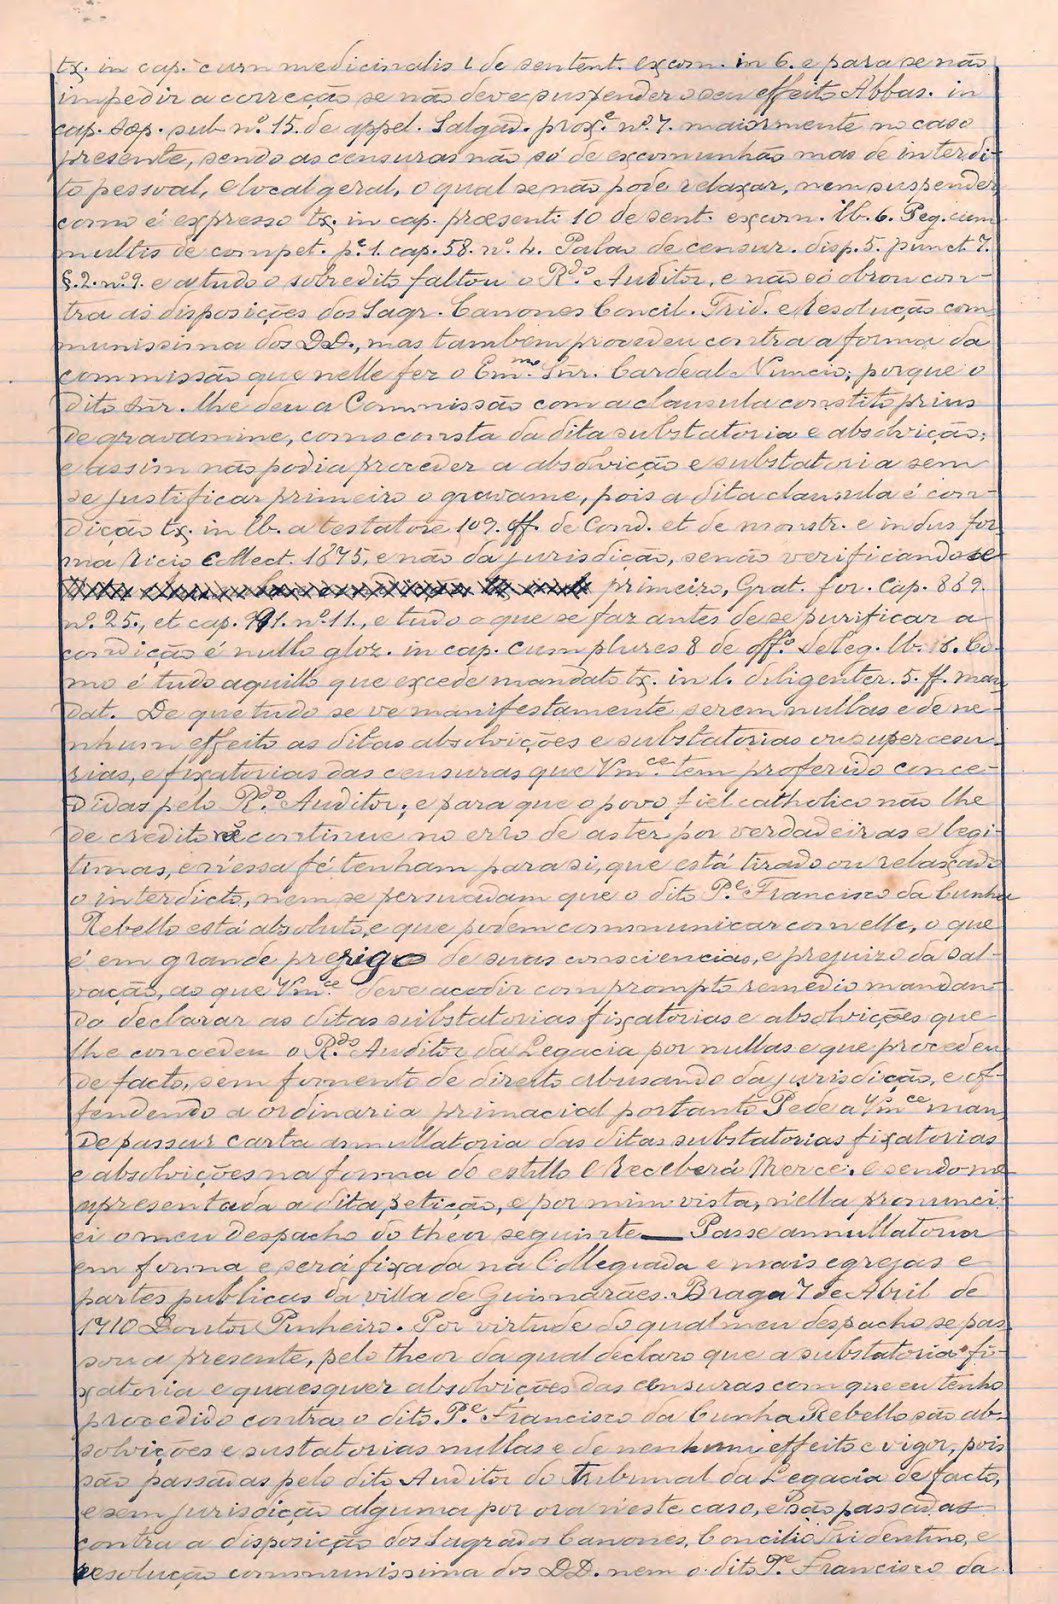 tx. in cap. cum medicinalis 1 de sentent. excom. in 6. e para se não
impedir a correcção se não deve suspender o seu effeito Abbas. in
cap. sæp. sub nº. 15. de appel. Salgad. prox.e nº. 7. maiormente no caso
presente, sendo as censuras não só de excomunhão mas de interdi-
to pessoal, e local geral, o qual se não pode relaxar, nem suspender
como é expresso tx. in cap. præsenti 10 de sent. excom. lb. 6. Peg. cum
multis de compet. p.e 1. cap. 58. nº. 4. Palao de censur. disp. 5. punct. 7.
§. 2. nº. 9. e a tudo o sobredito faltou o R.do Auditor, e não só obrou con-
tra as disposições dos Sagr. Canones Concil. Trid. e Resolução com-
munissima dos DD., mas tambem procedeu contra a forma da
commissão que nelle fez o Em.mo Snr. Cardeal Nuncio; porque o
dito Snr. lhe deu a Commissão com a clausula constito prius
de gravamine, como consta da dita substatoria e absolvição;
e assim não podia proceder a absolvição e substatoria sem
se justificar primeiro o gravame, pois a dita clausula é con-
dição tx. in lb. a testatore 109. ff. de Cond. et de monstr. e indus for
ma Ricio Collect. 1875, e não da jurisdição, senão verificando se
primeiro, Grat. for. Cap. 869.
nº. 25., et cap. 991. nº. 11., e tudo o que se faz antes de se purificar a
condição é nullo gloz. in cap. cum plures 8 de off.o deleg. lb. 6. Co-
mo é tudo aquillo que excede mandato tx. in l. diligenter. 5. ff. man
dat. De que tudo se ve manifestamente serem nullas e de ne-
nhum effeito as ditas absolvições e substatorias ou supercesu-
rias, e fixatorias das censuras que Vm.ce tem proferido conce-
didas pelo R.do Auditor; e para que o povo fiel catholico não lhe
de credito né continue no erro de as ter por verdadeiras e legi-
timas, e n'essa fé tenham para si, que está tirado ou relaxado
o interdicto, nem se persuadam que o dito P.e Francisco da Cunha
Rebello está absoluto, e que podem communicar com elle, o que
é em grande prejigo de suas consciencias, e prejuizo da sal-
vação, ao que Vm.ce deve acodir com prompto remedio mandan-
do declarar as ditas substatorias fixatorias e absolvições que
lhe concedeu o R.do Auditor da Legacia por nullas e que procedeu
de facto, sem fomento de direito abusando da jurisdicção, e of-
fendendo a ordinaria primacial portanto Pede a Vm.ce man
De passar carta annullatoria das ditas substatorias fixatorias
e absolvições na forma do estillo E Receberá Merce. e sendo me
apresentada a dita petição, e por mim vista, n'ella pronunci-
ei o meu despacho do theor seguinte — Passe annullatoria
em forma e será fixada na Collegiada e mais egrejas e
partes publicas da villa de Guimarães. Braga 7 de Abril de
1710 Doutor Pinheiro. Por virtude do qual meu despacho se pas
sou a presente, pelo theor da qual declaro que a substatoria fi-
xatoria e quaesquer absolvições das censuras com que eu tenho
procedido contra o dito P.e Francisco da Cunha Rebello são ab-
solvições e sustatorias nullas e de nenhum effeito e vigor, pois
são passadas pelo dito Auditor do Tribunal da Legacia de facto,
e sem jurisdição alguma por ora n'este caso, e são passadas
contra a disposição dos Sagrados Canones, Concilio Tridentino, e
resolução communissima dos DD. nem o dito P.e Francisco da